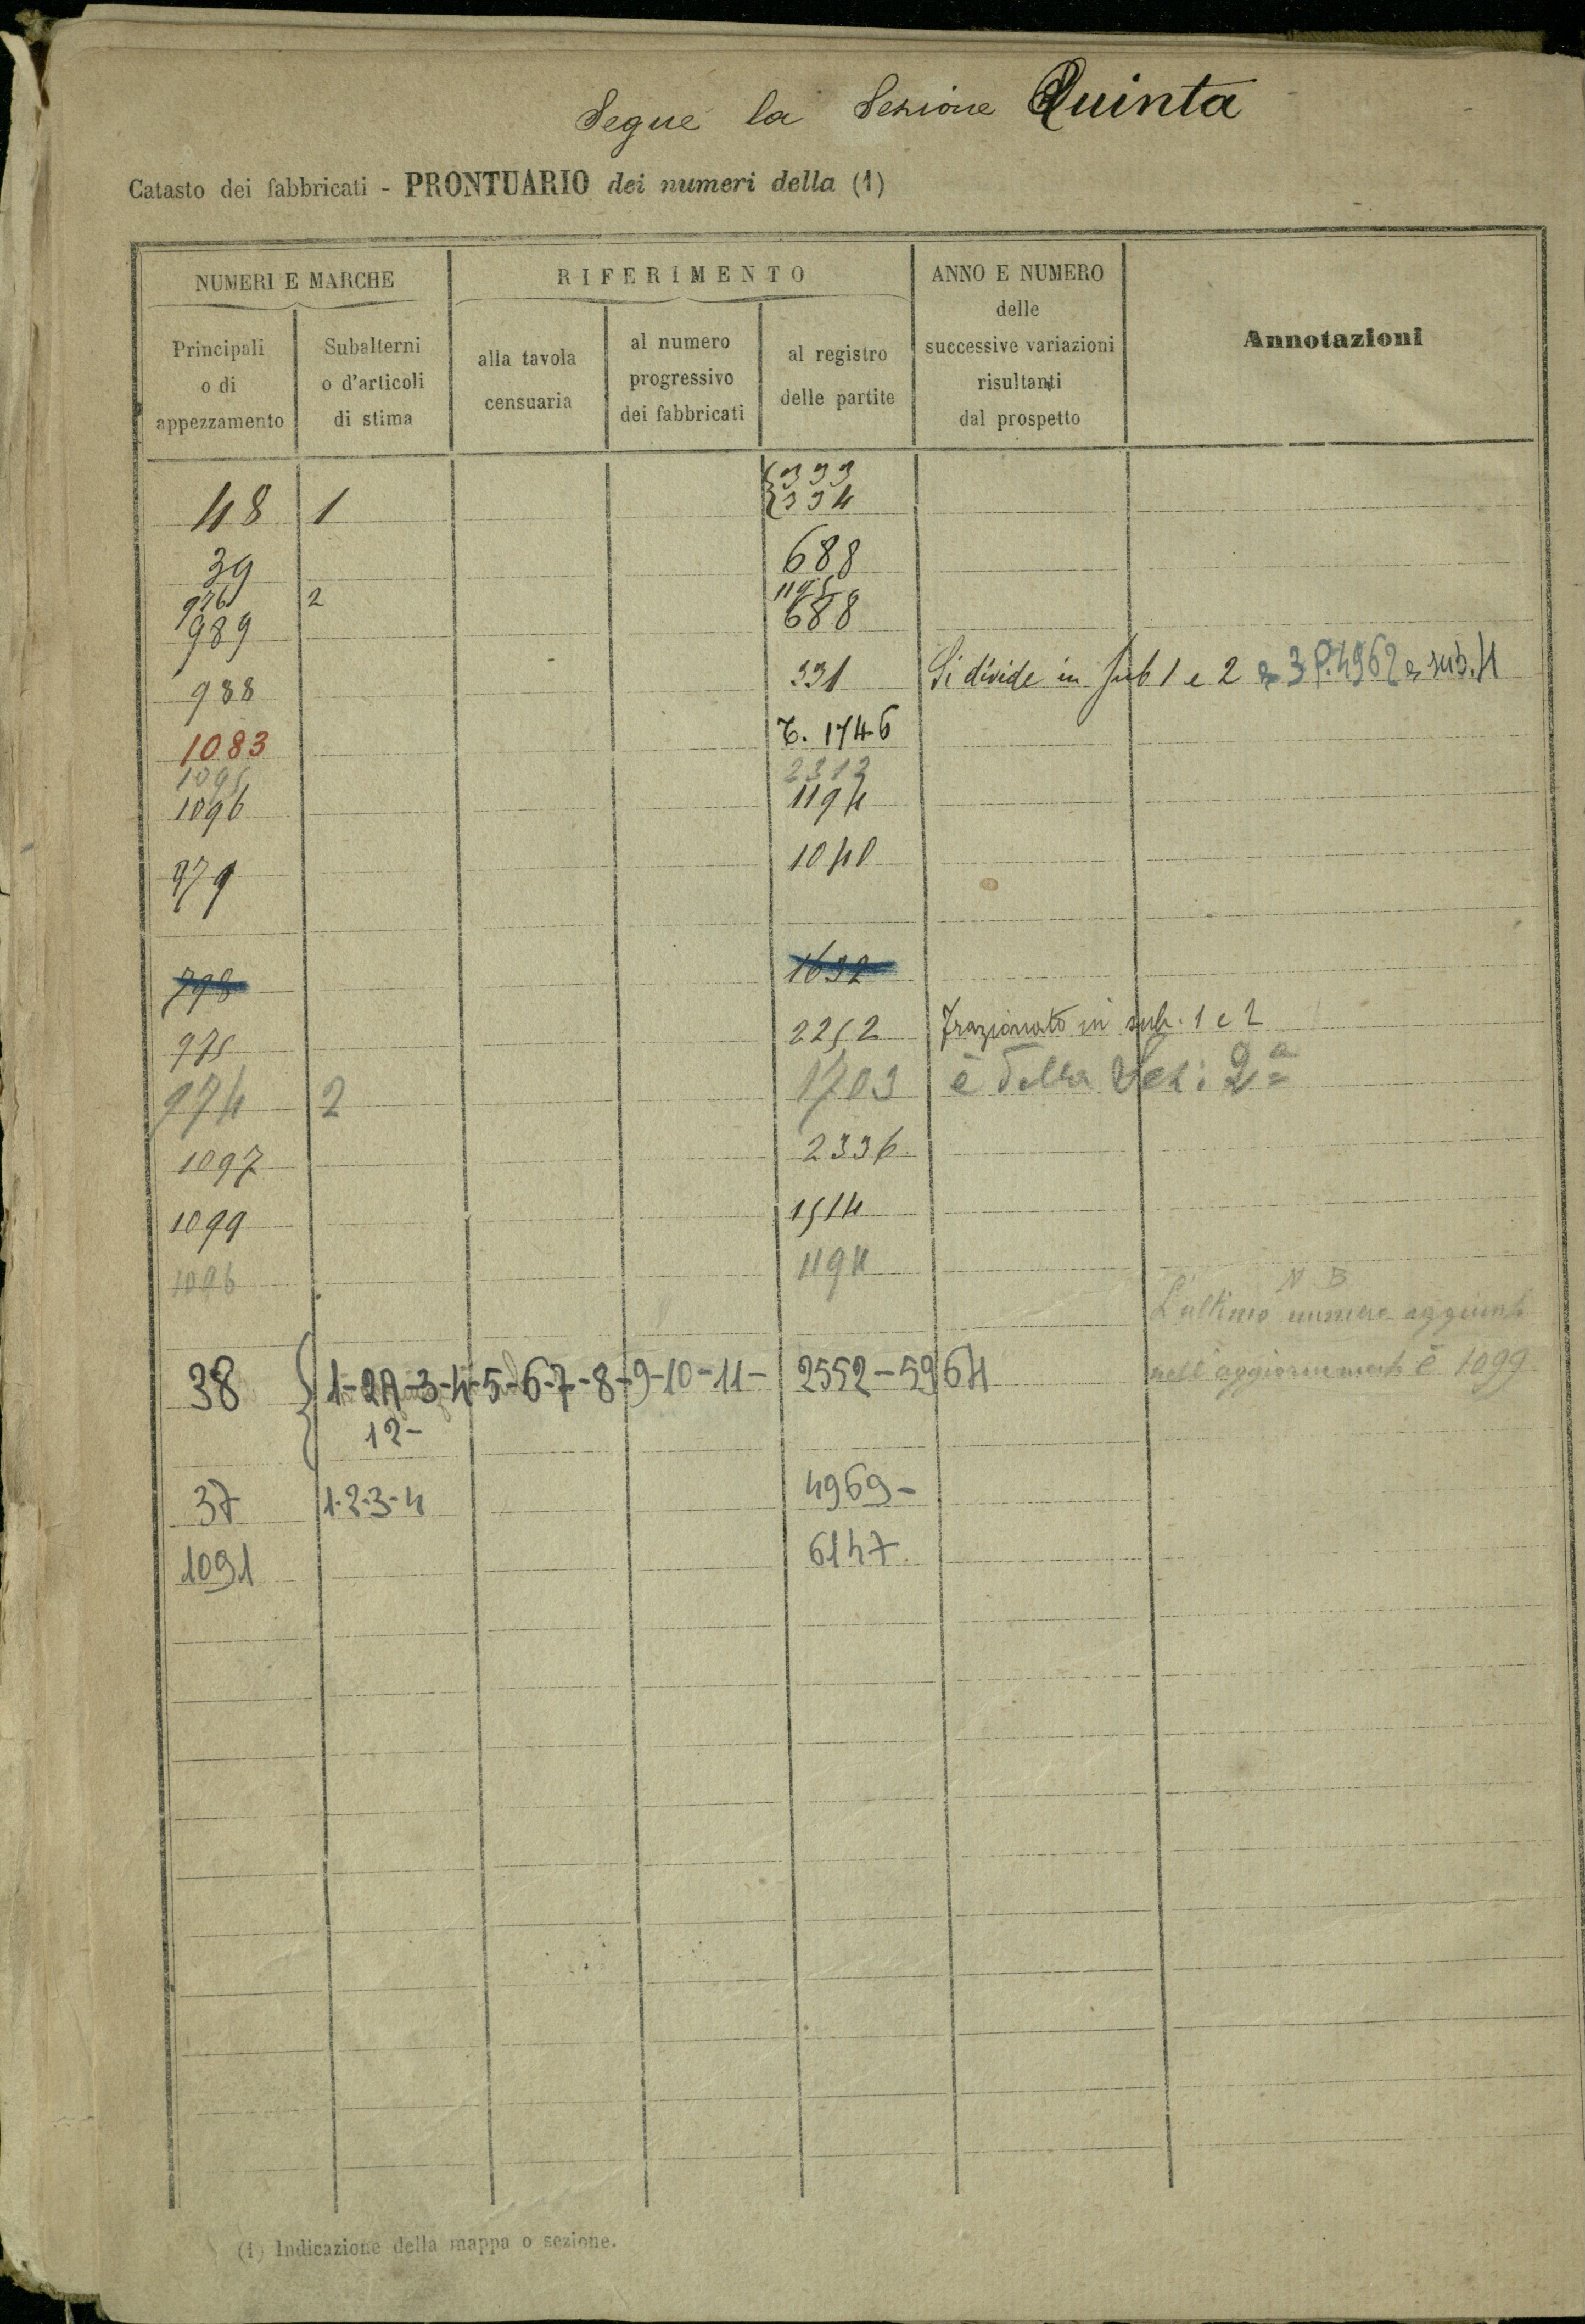 Segue la Sezione Quinta
Catasto dei fabbricati - PRONTUARIO dei numeri della (1)
NUMERI E MARCHE
RIFERIMENTO
ANNO E NUMERO
delle
successive variazioni
risultanti
dal prospetto
Annotazioni
Principali
o di
appezzamento
Subalterni
o d'articoli
di stima
alla tavola
censuaria
al numero
progressivo
dei fabbricati
al registro
delle partite
333
48 1 334
39 688
976 2 1195
989 688
988 331 Si divide in sub 1 e 2 e 3 P. 4962 e sub. 4
1083 T. 1746
1095 2313
1096 1194
979 1040
798 1632
975 2252 Frazionato in sub. 1 e 2
974 2 1703 è della Sez: 2ª
1097 2336
1099 1514
1096 1194
N B
L'ultimo numero aggiunto
nell'aggiornamento è 1099
38 1-2A-3-4-5-6-7-8-9-10-11- 2552-5964
12-
37 1-2-3-4 4969-
1091 6147.
(1) Indicazione della mappa o sezione.